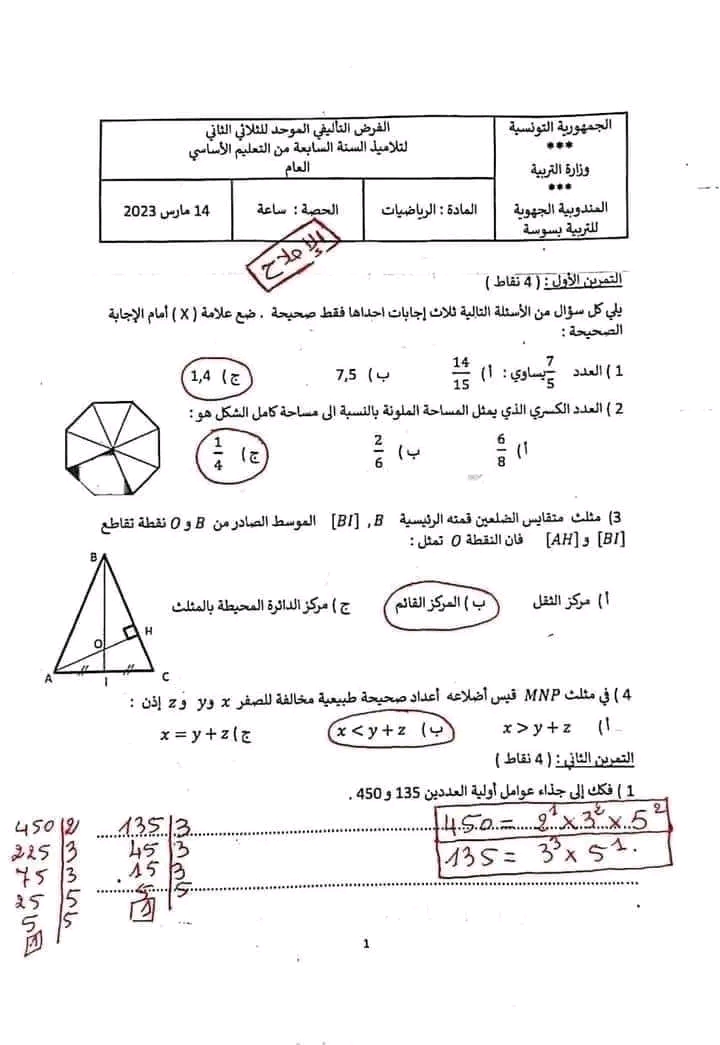 الجمهورية التونسية
***
وزارة التربية
***
المندوبية الجهوية
للتربية بسوسة
الفرض التأليفي الموحد للثلاثي الثاني
لتلاميذ السنة السابعة من التعليم الأساسي
العام
المادة : الرياضيات
الحصة : ساعة
14 مارس 2023
الإصلاح
التمرين الأول : ( 4 نقاط )
يلي كل سؤال من الأسئلة التالية ثلاث إجابات احداها فقط صحيحة . ضع علامة ( X ) أمام الإجابة
الصحيحة :
1 ) العدد 7/5 يساوي : أ) 14/15 ب) 7,5 ج) 1,4
2 ) العدد الكسري الذي يمثل المساحة الملونة بالنسبة الى مساحة كامل الشكل هو :
أ) 6/8 ب) 2/6 ج) 1/4
3) مثلث متقايس الضلعين قمته الرئيسية B , [BI] الموسط الصادر من B و O نقطة تقاطع
[BI] و [AH] فان النقطة O تمثل :
أ) مركز الثقل ب) المركز القائم ج) مركز الدائرة المحيطة بالمثلث
B
H
O
A
I
C
4 ) في مثلث MNP قيس أضلاعه أعداد صحيحة طبيعية مخالفة للصفر x و y و z إذن :
أ) x > y + z ب) x < y + z ج) x = y + z
التمرين الثاني : ( 4 نقاط )
1 ) فكك إلى جذاء عوامل أولية العددين 135 و 450 .
450 = 2¹ x 3² x 5²
135 = 3³ x 5¹.
135 | 3
45 | 3
15 | 3
5 | 5
1
450 | 2
225 | 3
75 | 3
25 | 5
5 | 5
1
1